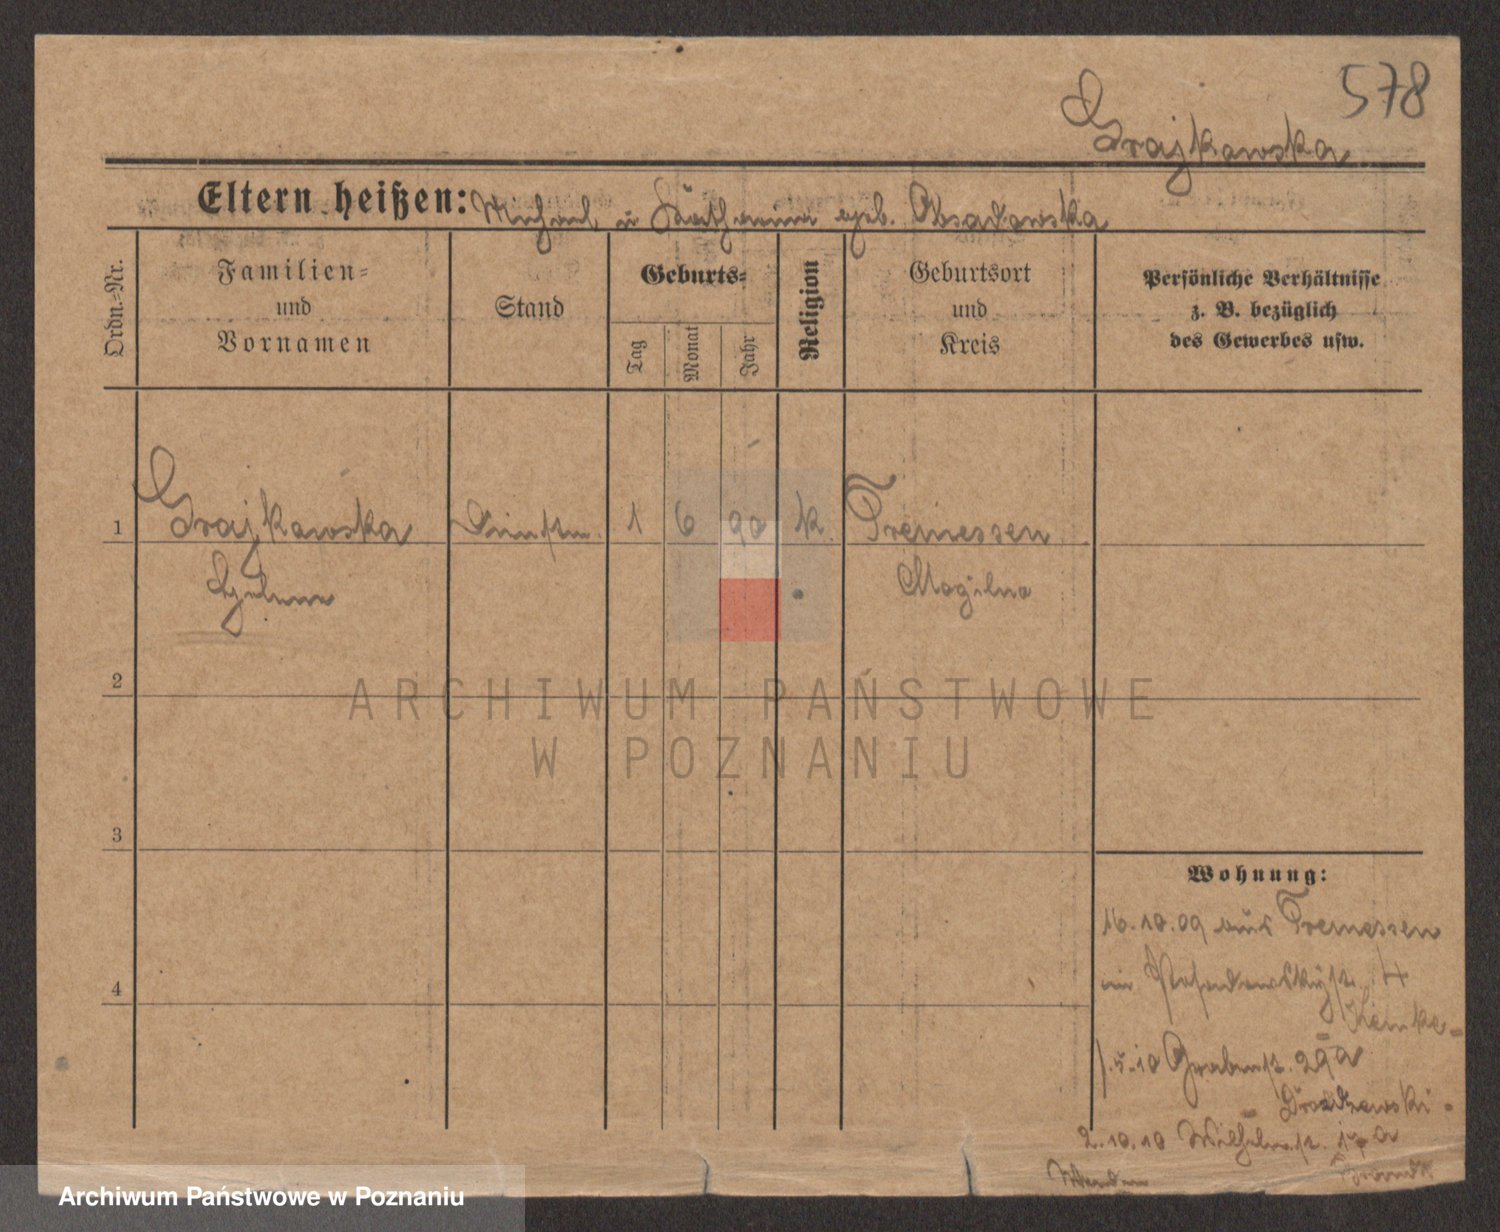 578
Grajkowska
Eltern heißen: Michael u Katharina geb. Obsadowska
Ordn.-Nr.
Familien-
und
Vornamen
Stand
Geburts-
Tag
Monat
Jahr
Religion
Geburtsort
und
Kreis
Persönliche Verhältnisse
z. B. bezüglich
des Gewerbes usw.
1 Grajkowska 1 6 90 k. Tremessen
Mogilno
2
3
4
ARCHIWUM PAŃSTWOWE
W POZNANIU
Wohnung:
16.10.09 aus Tremessen
4
1.5.10 Grabenst. 29a
2.10.10 Wilhelmst. 17a
Archiwum Państwowe w Poznaniu